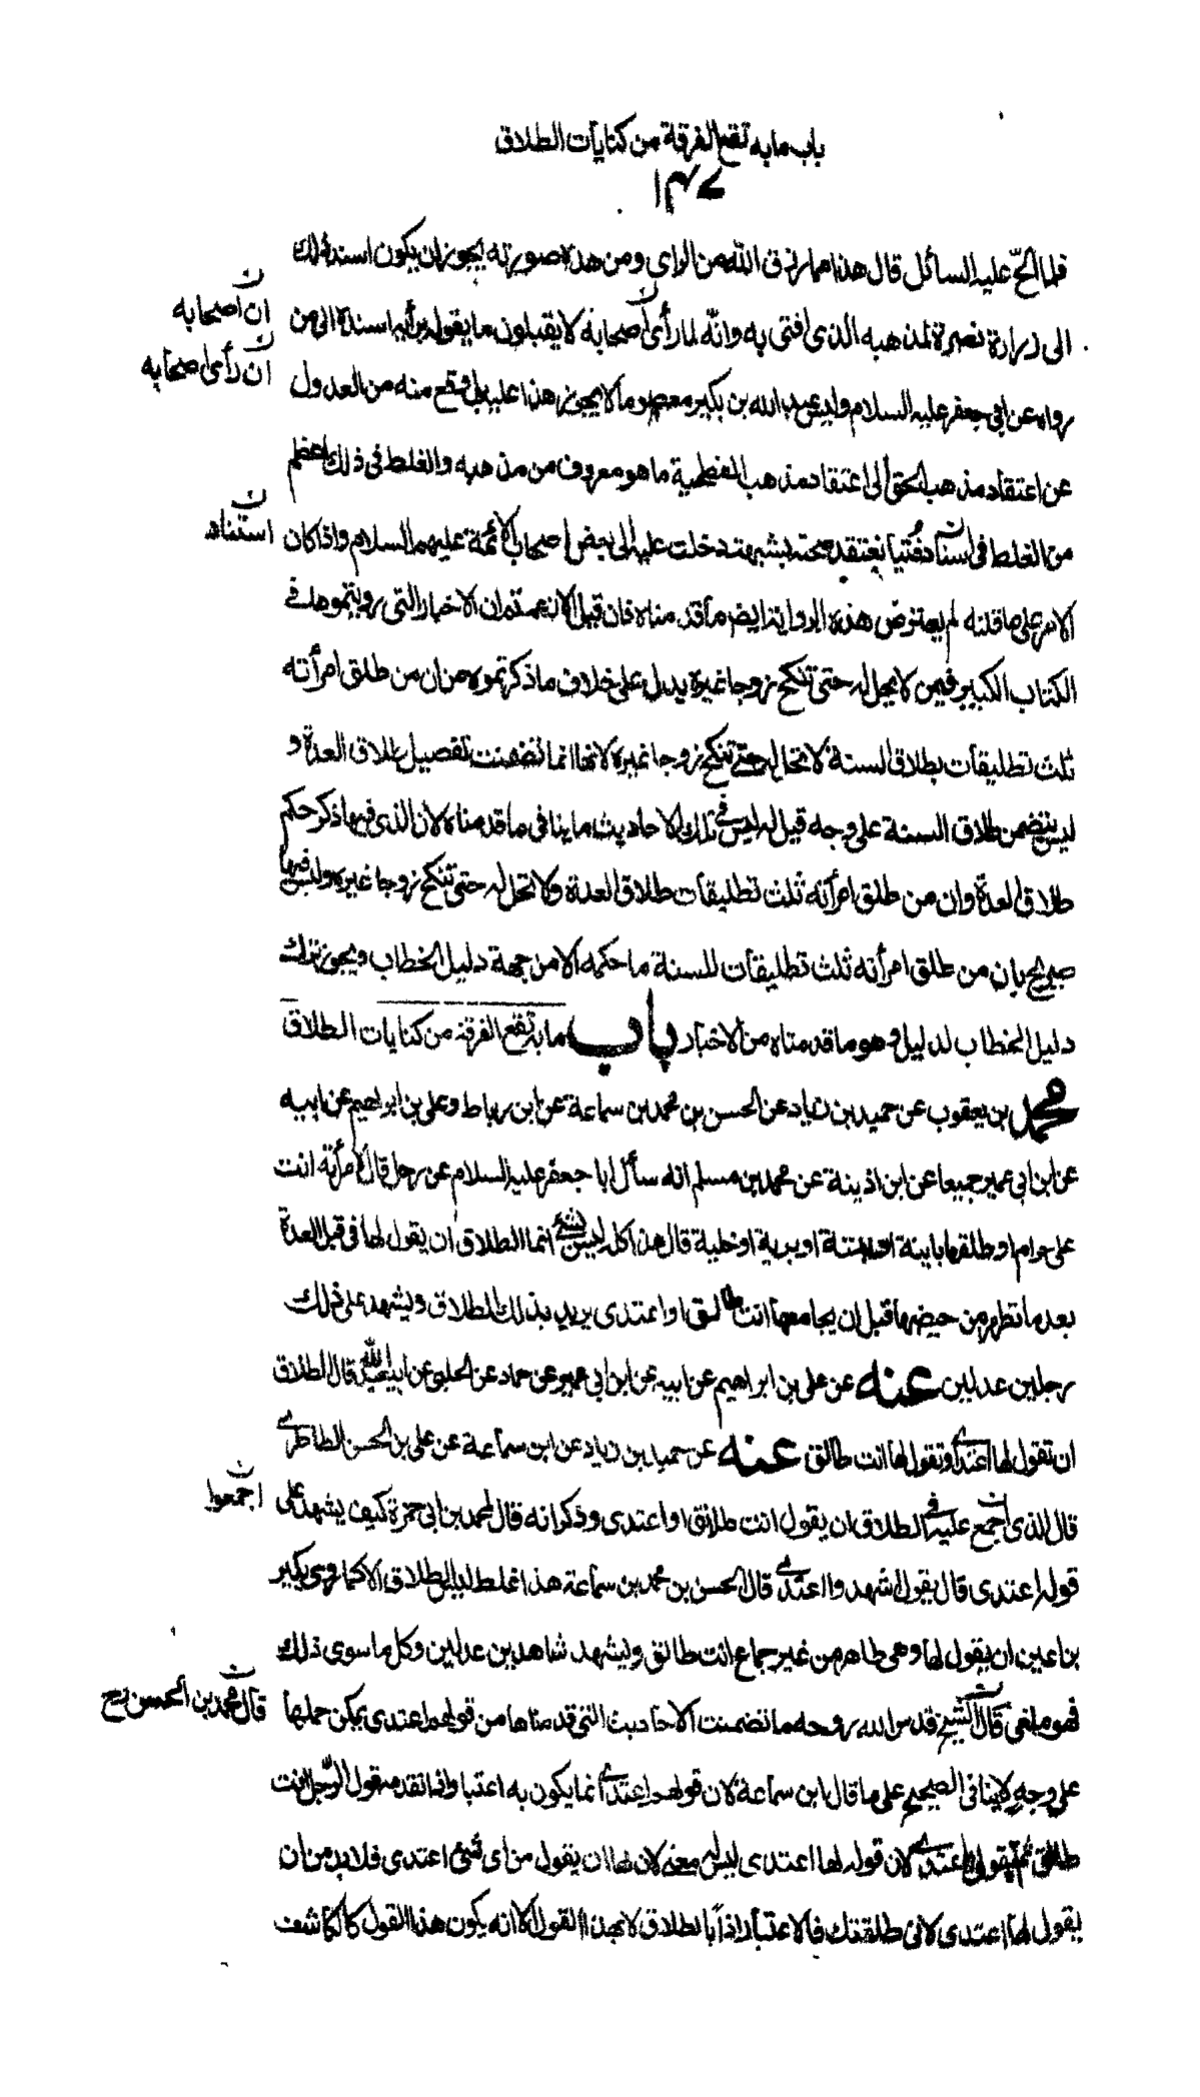 باب ما به تقع الفرقة من كنايات الطلاق
١٤٧
فلما الحّ عليه السائل قال هذا مما رزق الله من الراى ومن هذه صورته يجوز ان يكون اسند ذلك
الى زرارة نصرة لمذهبه الذى افتى به وانّه لما رأى اصحابه لا يقبلون ما يقوله برأيه اسنده الى من
ان اصحابه
ان رأى اصحابه
رواه عن ابى جعفر عليه السلام وليس عبد الله بن بكير معصوما لا يجوز هذا عليه بل وقع منه من العدول
عن اعتقاد مذهب الحق الى اعتقاد مذهب الفطحية ما هو معروف من مذهبه والغلط فى ذلك اعظم
من الغلط فى اسناد فُتيا يعتقد صحته لشبهة دخلت عليه الى بعض اصحاب الائمة عليهم السلام واذا كان
استناد
الامر على ما قلناه لم يعترض هذه الرواية ايضا ما قدمناه فان قيل الان عمدتم ان الاخبار التى رويتموها فى
الكتاب الكبير فيمن لا يحل له حتى تنكح زوجا غيره يدل على خلاف ما ذكرتموه من ان من طلق امرأته
ثلث تطليقات بطلاق السنة لا تحل له حتى تنكح زوجا غيره لانها انما تضمنت تفصيل طلاق العدة و
ليس يتضمن طلاق السنة على وجه قيل له ليس فى تلك الاحاديث ما ينافى ما قدمناه لان الذى فيها ذكر حكم
طلاق العدة وان من طلق امرأته ثلث تطليقات طلاق العدة ولا تحل له حتى تنكح زوجا غيره وليس فيها
صريح بان من طلق امرأته ثلث تطليقات للسنة ما حكمه الا من جهة دليل الخطاب ويجوز ترك
دليل الخطاب لدليل وهو ما قدمناه من الاخبار باب ما به تقع الفرقة من كنايات الطلاق
محمد بن يعقوب عن حميد بن زياد عن الحسن بن محمد بن سماعة عن ابن رباط وعلى بن ابراهيم عن ابيه
عن ابن ابى عمير جميعا عن ابن اذينة عن محمد بن مسلم انه سأل ابا جعفر عليه السلام عن رجل قال لامرأته انت
على حرام او طلقها باينة او بتة او برية او خلية قال هذا كله ليس بشئ انما الطلاق ان يقول لها فى قبل العدة
بعد ما تطهر من حيضها قبل ان يجامعها انت طالق او اعتدى يريد بذلك الطلاق ويشهد على ذلك
رجلين عدلين عنه عن على بن ابراهيم عن ابيه عن ابن ابى عمير عن حماد عن الحلبى عن ابى عبد الله قال الطلاق
ان تقول لها اعتدى او تقول لها انت طالق عنه عن حميد بن زياد عن ابن سماعة عن على بن الحسن الطاطرى
قال الذى اجمع عليه فى الطلاق ان يقول انت طالق او اعتدى وذكر انه قال لمحمد بن ابى حمزة كيف يشهد على
اجمعوا
قوله اعتدى قال يقول اشهدوا اعتدى قال الحسن بن محمد بن سماعة هذا غلط ليس الطلاق الا كما روى بكير
بن اعين ان يقول لها وهى طاهر من غير جماع انت طالق ويشهد شاهدين عدلين وكل ما سوى ذلك
فهو ملغى قال الشيخ قدس الله روحه ما تضمنت الاحاديث التى قدمناها من قولهم اعتدى يمكن حملها
قال محمد بن الحسن رح
على وجه لا ينافى الصحيح على ما قال ابن سماعة لان قولهم اعتدى انما يكون به اعتبار اذا تقدمه قول الرجل انت
طالق ثم يقول اعتدى لان قوله لها اعتدى ليس له معنى لان لها ان يقول من اى شئ اعتدى فلا بد من ان
يقول لها اعتدى لانى طلقتك فالاعتبار اذاً بالطلاق لا بهذا القول الا انه يكون هذا القول كالكاشف